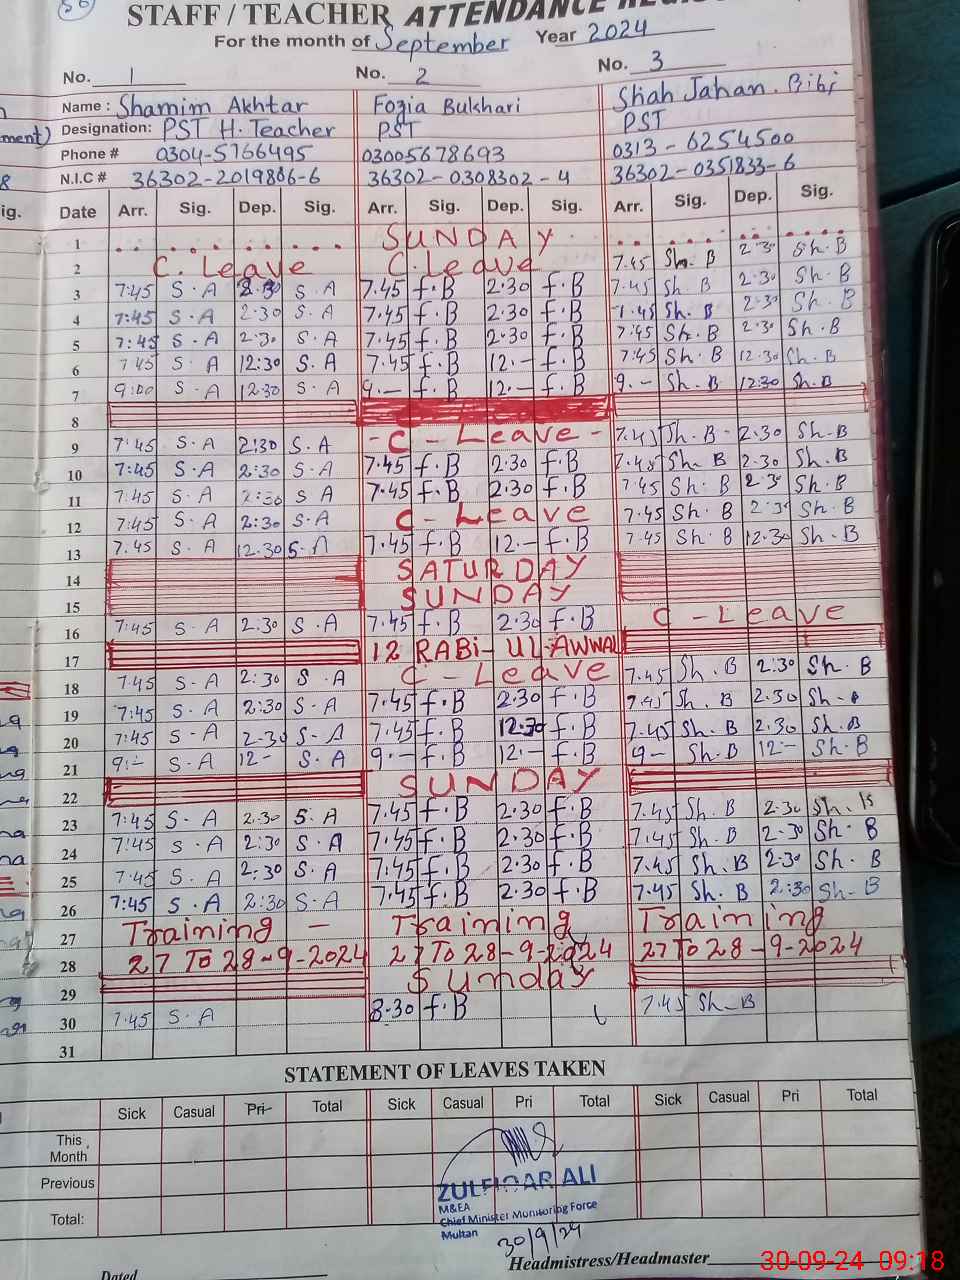 STAFF / TEACHER ATTENDANCE REGIS
For the month of September Year 2024
No. 1 No. 2 No. 3
Name : Shamim Akhtar Fozia Bukhari Shah Jahan. Bibi
Designation: PST H. Teacher PST PST
Phone # 0304-5766495 03005678693 0313-6254500
N.I.C # 36302-2019886-6 36302-0308302-4 36302-0351833-6
Date Arr. Sig. Dep. Sig. Arr. Sig. Dep. Sig. Arr. Sig. Dep. Sig.
1 SUNDAY
2 C. Leave C. Leave 7.45 Sh. B 2.30 Sh. B
3 7:45 S. A 2.30 S. A 7.45 f. B 2.30 f. B 7.45 Sh. B 2.30 Sh. B
4 7:45 S. A 2.30 S. A 7.45 f. B 2.30 f. B 7.45 Sh. B 2.30 Sh. B
5 7:45 S. A 2.30 S. A 7.45 f. B 2.30 f. B 7:45 Sh. B 2.30 Sh. B
6 7 45 S. A 12:30 S. A 7.45 f. B 12.— f. B 7:45 Sh. B 12.30 Sh. B
7 9:00 S. A 12.30 S. A 9.— f. B 12.— f. B 9.— Sh. B 12:30 Sh. B
8
9 7:45 S. A 2:30 S. A - C - Leave - 7.45 Sh. B - 2.30 Sh. B
10 7:45 S. A 2:30 S. A 7.45 f. B 2.30 f. B 7.45 Sh. B 2.30 Sh. B
11 7.45 S. A 2:30 S A 7.45 f. B 2.30 f. B 7.45 Sh. B 2.30 Sh. B
12 7:45 S. A 2:30 S. A C - Leave 7.45 Sh. B 2.30 Sh. B
13 7.45 S. A 12.30 S. A 7.45 f. B 12.— f. B 7.45 Sh. B 12.30 Sh. B
14 SATURDAY
15 SUNDAY
16 7:45 S. A 2.30 S. A 7.45 f. B 2.30 f. B C - Leave
17 12 RABI-UL-AWWAL
18 7.45 S. A 2:30 S. A C - Leave 7.45 Sh. B 2:30 Sh. B
19 7:45 S. A 2:30 S. A 7.45 f. B 2.30 f. B 7.45 Sh. B 2.30 Sh -
20 7:45 S. A 2.30 S. A 7.45 f. B 12.30 f. B 7.45 Sh. B 2.30 Sh. B
21 9:- S. A 12- S. A 9.— f. B 12.— f. B 9— Sh. B 12.- Sh. B
22 SUNDAY
23 7:45 S. A 2.30 S. A 7.45 f. B 2.30 f. B 7.45 Sh. B 2.30 Sh.
24 7:45 S. A 2:30 S. A 7.45 f. B 2.30 f. B 7.45 Sh. B 2.30 Sh. B
25 7:45 S. A 2:30 S. A 7.45 f. B 2.30 f. B 7.45 Sh. B 2.30 Sh. B
26 7:45 S. A 2:30 S. A 7.45 f. B 2.30 f. B 7.45 Sh. B 2:30 Sh. B
27 Training — Training Training
28 27 To 28-9-2024 27 To 28-9-2024 27 To 28-9-2024
29 Sunday
30 7.45 S. A 8.30 f. B 7.45 Sh. B
31
STATEMENT OF LEAVES TAKEN
Sick Casual Pri Total Sick Casual Pri Total Sick Casual Pri Total
This Month
Previous
Total:
ZULFIQAR ALI
M&EA
Chief Minister Monitoring Force
Multan
30/9/24
Headmistress/Headmaster
Dated
30-09-24 09:18